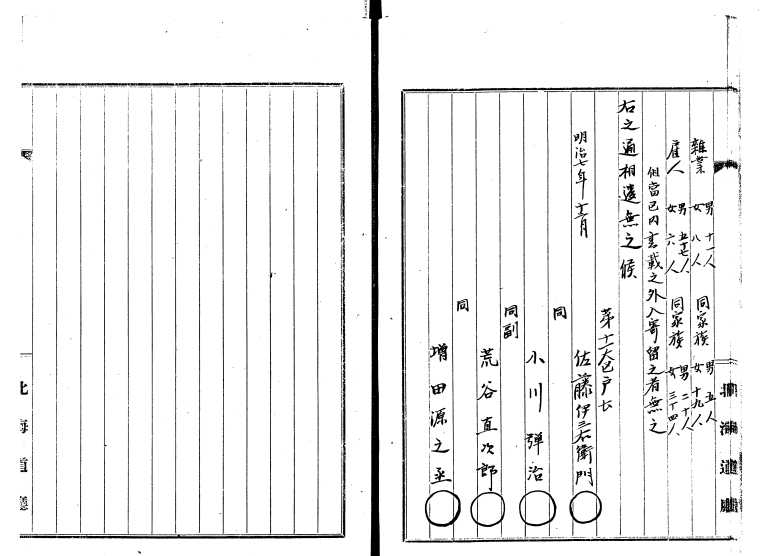 雑業 男十一人 同家族 男五人
女八人 女十九人
雇人 男五十七人 同家族 男二十人
女六人 女三十四人
但當區内書載之外入寄留之者無之
右之通相違無之候
明治七年十二月
第十一大区戸長
佐藤伊三右衛門
同
小川弾治
同副
荒谷直次郎
同
増田源之丞
北海道廳